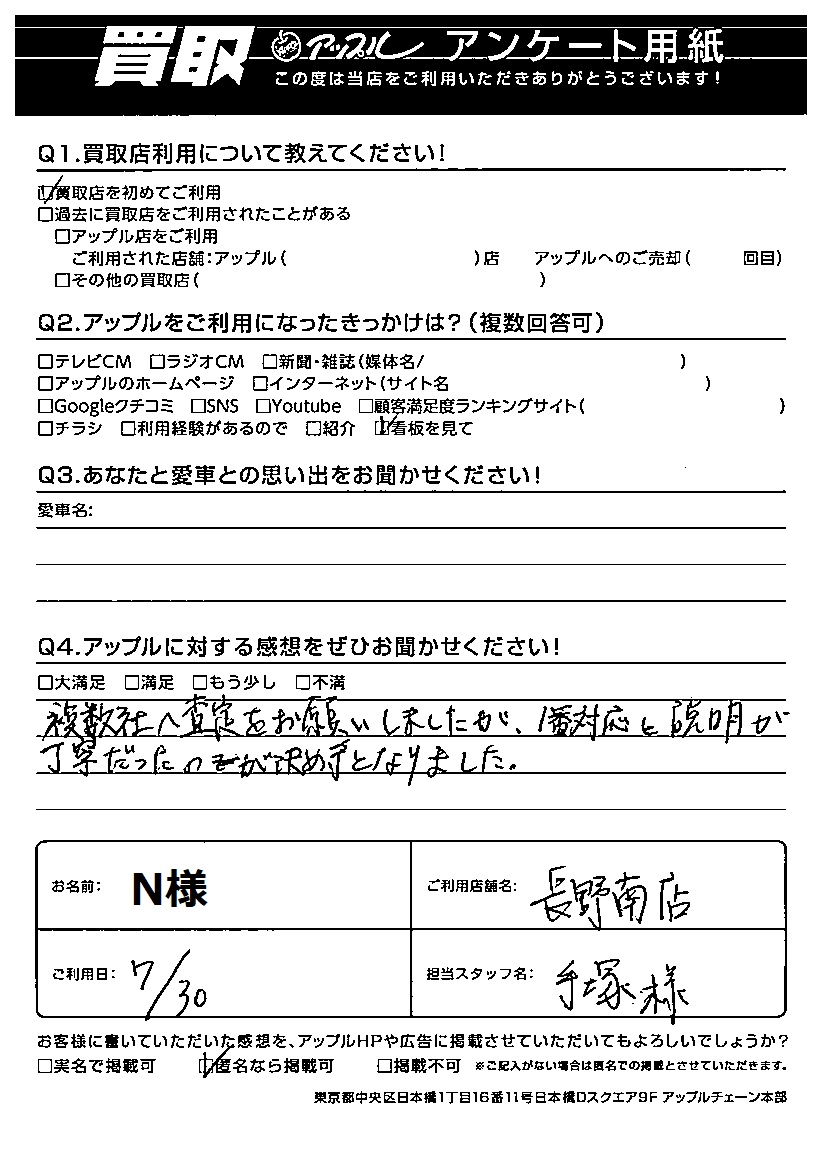 買取 アップル アンケート用紙
この度は当店をご利用いただきありがとうございます!
Q1.買取店利用について教えてください!
☑買取店を初めてご利用
□過去に買取店をご利用されたことがある
□アップル店をご利用
ご利用された店舗:アップル( )店 アップルへのご売却( 回目)
□その他の買取店( )
Q2.アップルをご利用になったきっかけは?(複数回答可)
□テレビCM □ラジオCM □新聞・雑誌(媒体名/ )
□アップルのホームページ □インターネット(サイト名 )
□Googleクチコミ □SNS □Youtube □顧客満足度ランキングサイト( )
□チラシ □利用経験があるので □紹介 ☑看板を見て
Q3.あなたと愛車との思い出をお聞かせください!
愛車名:
Q4.アップルに対する感想をぜひお聞かせください!
□大満足 □満足 □もう少し □不満
複数社へ査定をお願いしましたが、1番対応と説明が
丁寧だったのが決め手となりました。
お名前: N様 ご利用店舗名: 長野南店
ご利用日: 7/30 担当スタッフ名: 手塚様
お客様に書いていただいた感想を、アップルHPや広告に掲載させていただいてもよろしいでしょうか?
□実名で掲載可 ☑匿名なら掲載可 □掲載不可 ※ご記入がない場合は匿名での掲載とさせていただきます。
東京都中央区日本橋1丁目16番11号日本橋Dスクエア9F アップルチェーン本部